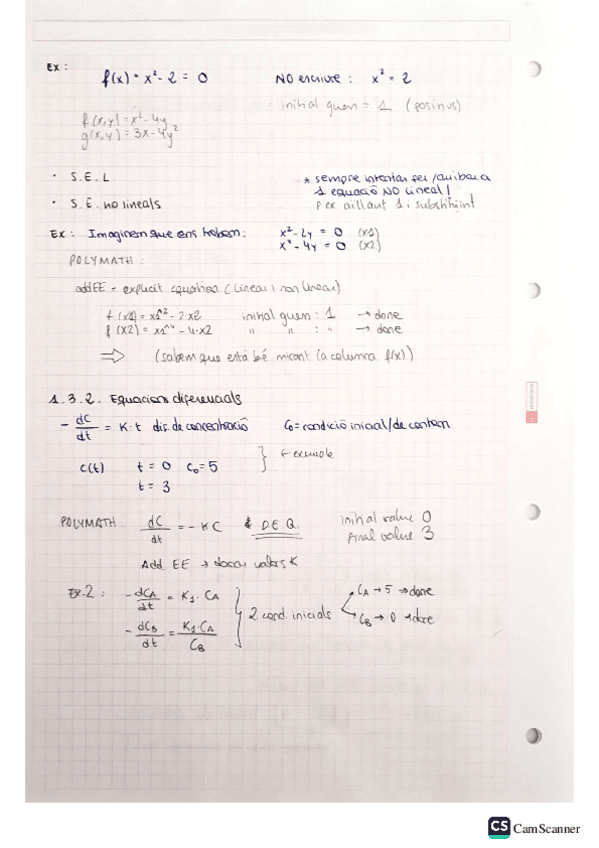 Ex:
f(x) = x² - 2 = 0    NO escriure: x² = 2
initial guess = 1 (positius)
f(x,y) = x² - 4y
g(x,y) = 3x - 4y²
· S.E.L
* sempre intentar fer /arribar a
1 equació NO lineal!
· S.E. no lineals
p ex aïllant 1 i substituint
Ex: Imaginem que ens trobem: x² - 2y = 0 (x1)
- 4y = 0 (x2)
POLYMATH:
add EE = explicit equation (lineal i non lineal)
f(x1) = x1^2 - 2·x2    initial guess: 1 → done
f(x2) = x1^4 - 4·x2    " " : " → done
⇒ (sabem que està bé mirant la columna f(x))
1.3.2. Equacions diferencials
- dC/dt = K·t dif. de concentració    C0 = condició inicial/de contorn
C(t)    t = 0    C0 = 5    } ← exemple
t = 3
POLYMATH: dC/dt = - KC    D.E.Q.    initial value 0
Final value 3
Add EE → donar valors K
Ex.2: - dCA/dt = K1·CA
- dCB/dt = K1·CA/CB    } 2 cond. inicials
CA → 5 → done
CB → 0 → done
CS CamScanner